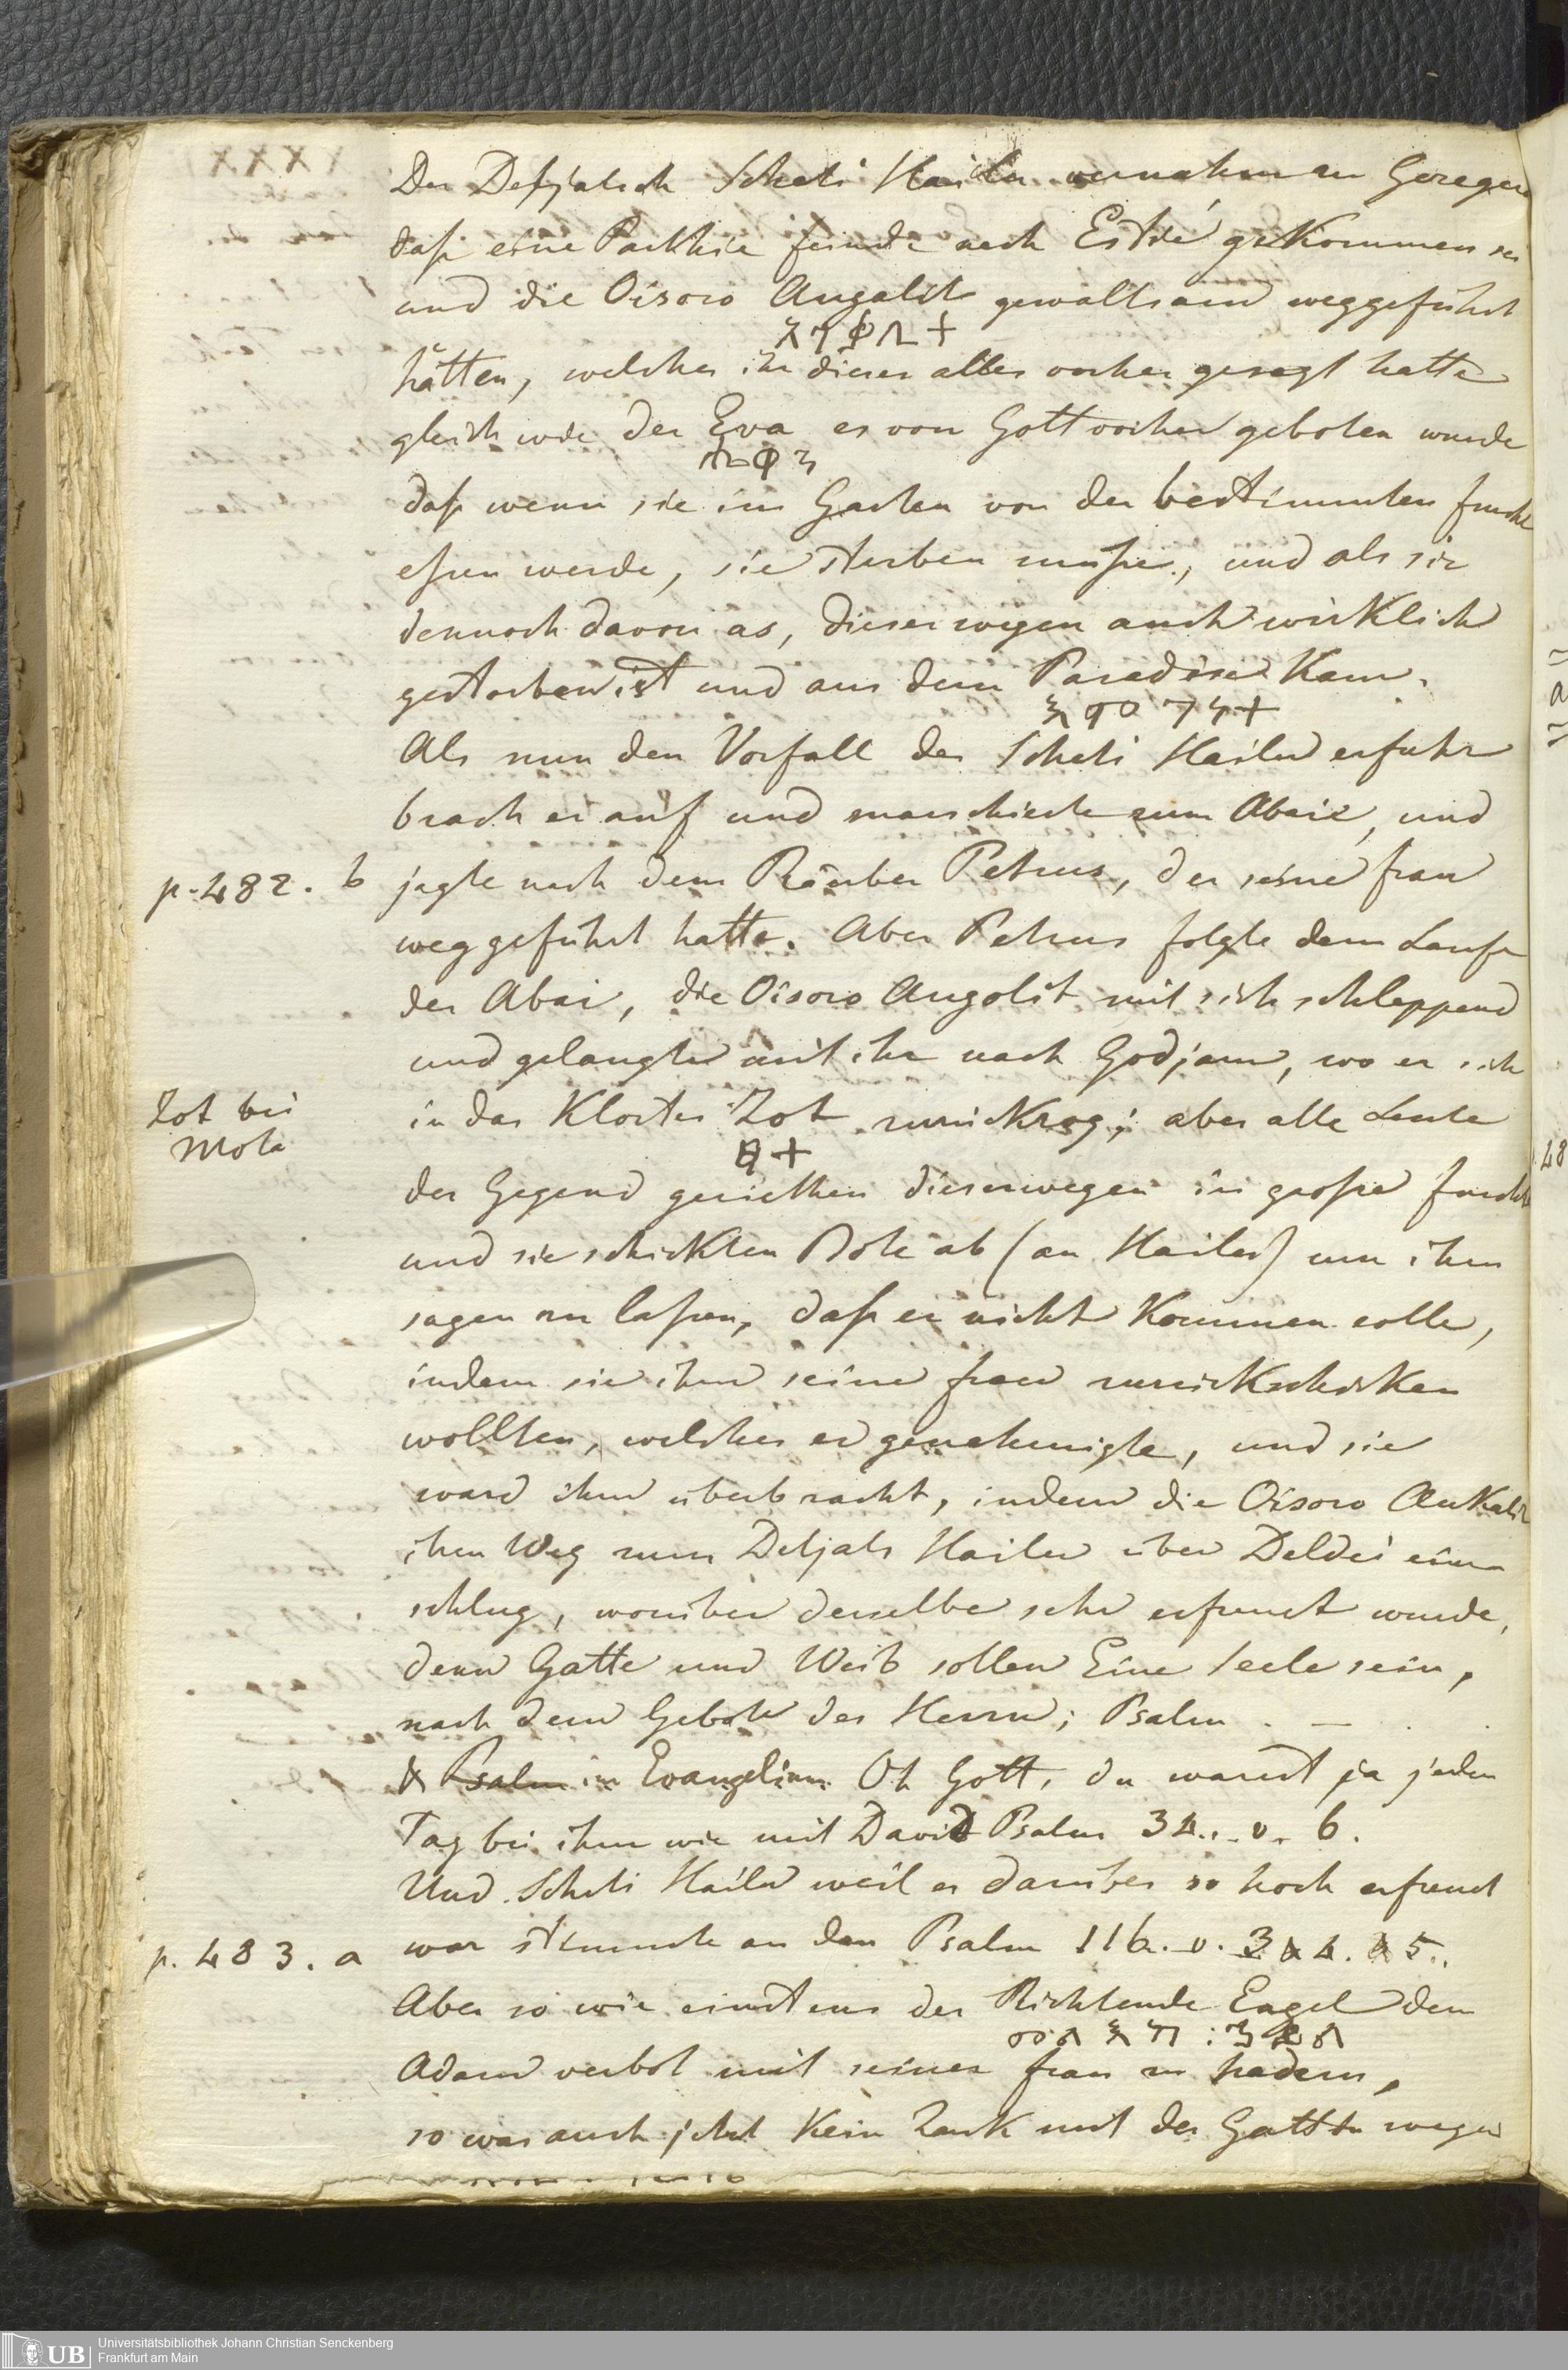 Der Defjatsch Scheti Hailu vernahm in Geregera
daß eine Parthie feinde nach Estie gekommen sei
und die Oisoro Angalit gewaltsam weggeführt
hätten, welches ihr dieses alles vorher gesagt hatte
gleich wie der Eva es von Gott vorher geboten wurde
daß wenn sie im Garten von der bestimmten frucht
eßen werde, sie sterben muße, und als sie
dennoch davon as, dieserwegen auch wirklich
gestorben ist und aus dem Paradise kam.
Als nun den Vorfall der Scheti Hailu erfuhr
brach er auf und marschierte zum Abaie, und
p. 482. b jagte nach dem Räuber Petrus, der seine frau
weggeführt hatte. Aber Petrus folgte dem Laufe
des Abai, die Oisoro Angolit mit sich schleppend
und gelangte mit ihr nach Godjam, wo er sich
Zot bei
Mota
in das Kloster Zot zurückzog; aber alle Leute
ዞት
der Gegend geriethen dieserwegen in große furcht
und sie schickten Bote ab (an Hailu) um ihm
sagen zu laßen, daß er nicht kommen solle,
indem sie ihm seine frau zurückschicken
wollten, welches er genehmigte, und sie
ward ihm überbracht, indem die Oisoro Ankalit
ihren Weg zum Detjats Hailu über Deldei ein
schlug, worüber derselbe sehr erfreut wurde,
denn Gatte und Weib sollen Eine Seele sein,
nach dem Gebote des Herrn; Psalm . — . .
Psalm im Evangelium Oh Gott, du warest ja jeden
Tag bei ihm wie mit David Psalm 34. v. 6.
Und Scheti Hailu weil er darüber so hoch erfreut
p. 483. a war stimmte an den Psalm 116. v. 3 4. 5.
Aber so wie einstens der Richtende Engel dem
Adam verbot mit seiner frau zu hadern,
so war auch jetzt kein Zank mit der Gattin wegen
Universitätsbibliothek Johann Christian Senckenberg
UB Frankfurt am Main